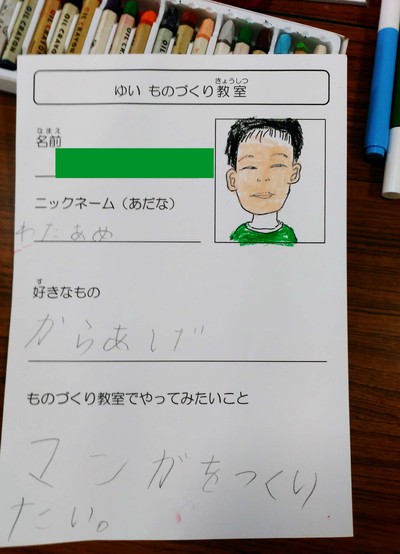 ゆい ものづくり教室
きょうしつ
名前
なまえ
ニックネーム（あだな）
わたあめ
好きなもの
す
からあげ
ものづくり教室でやってみたいこと
マンガをつくり
たい。
OIL CRAYON